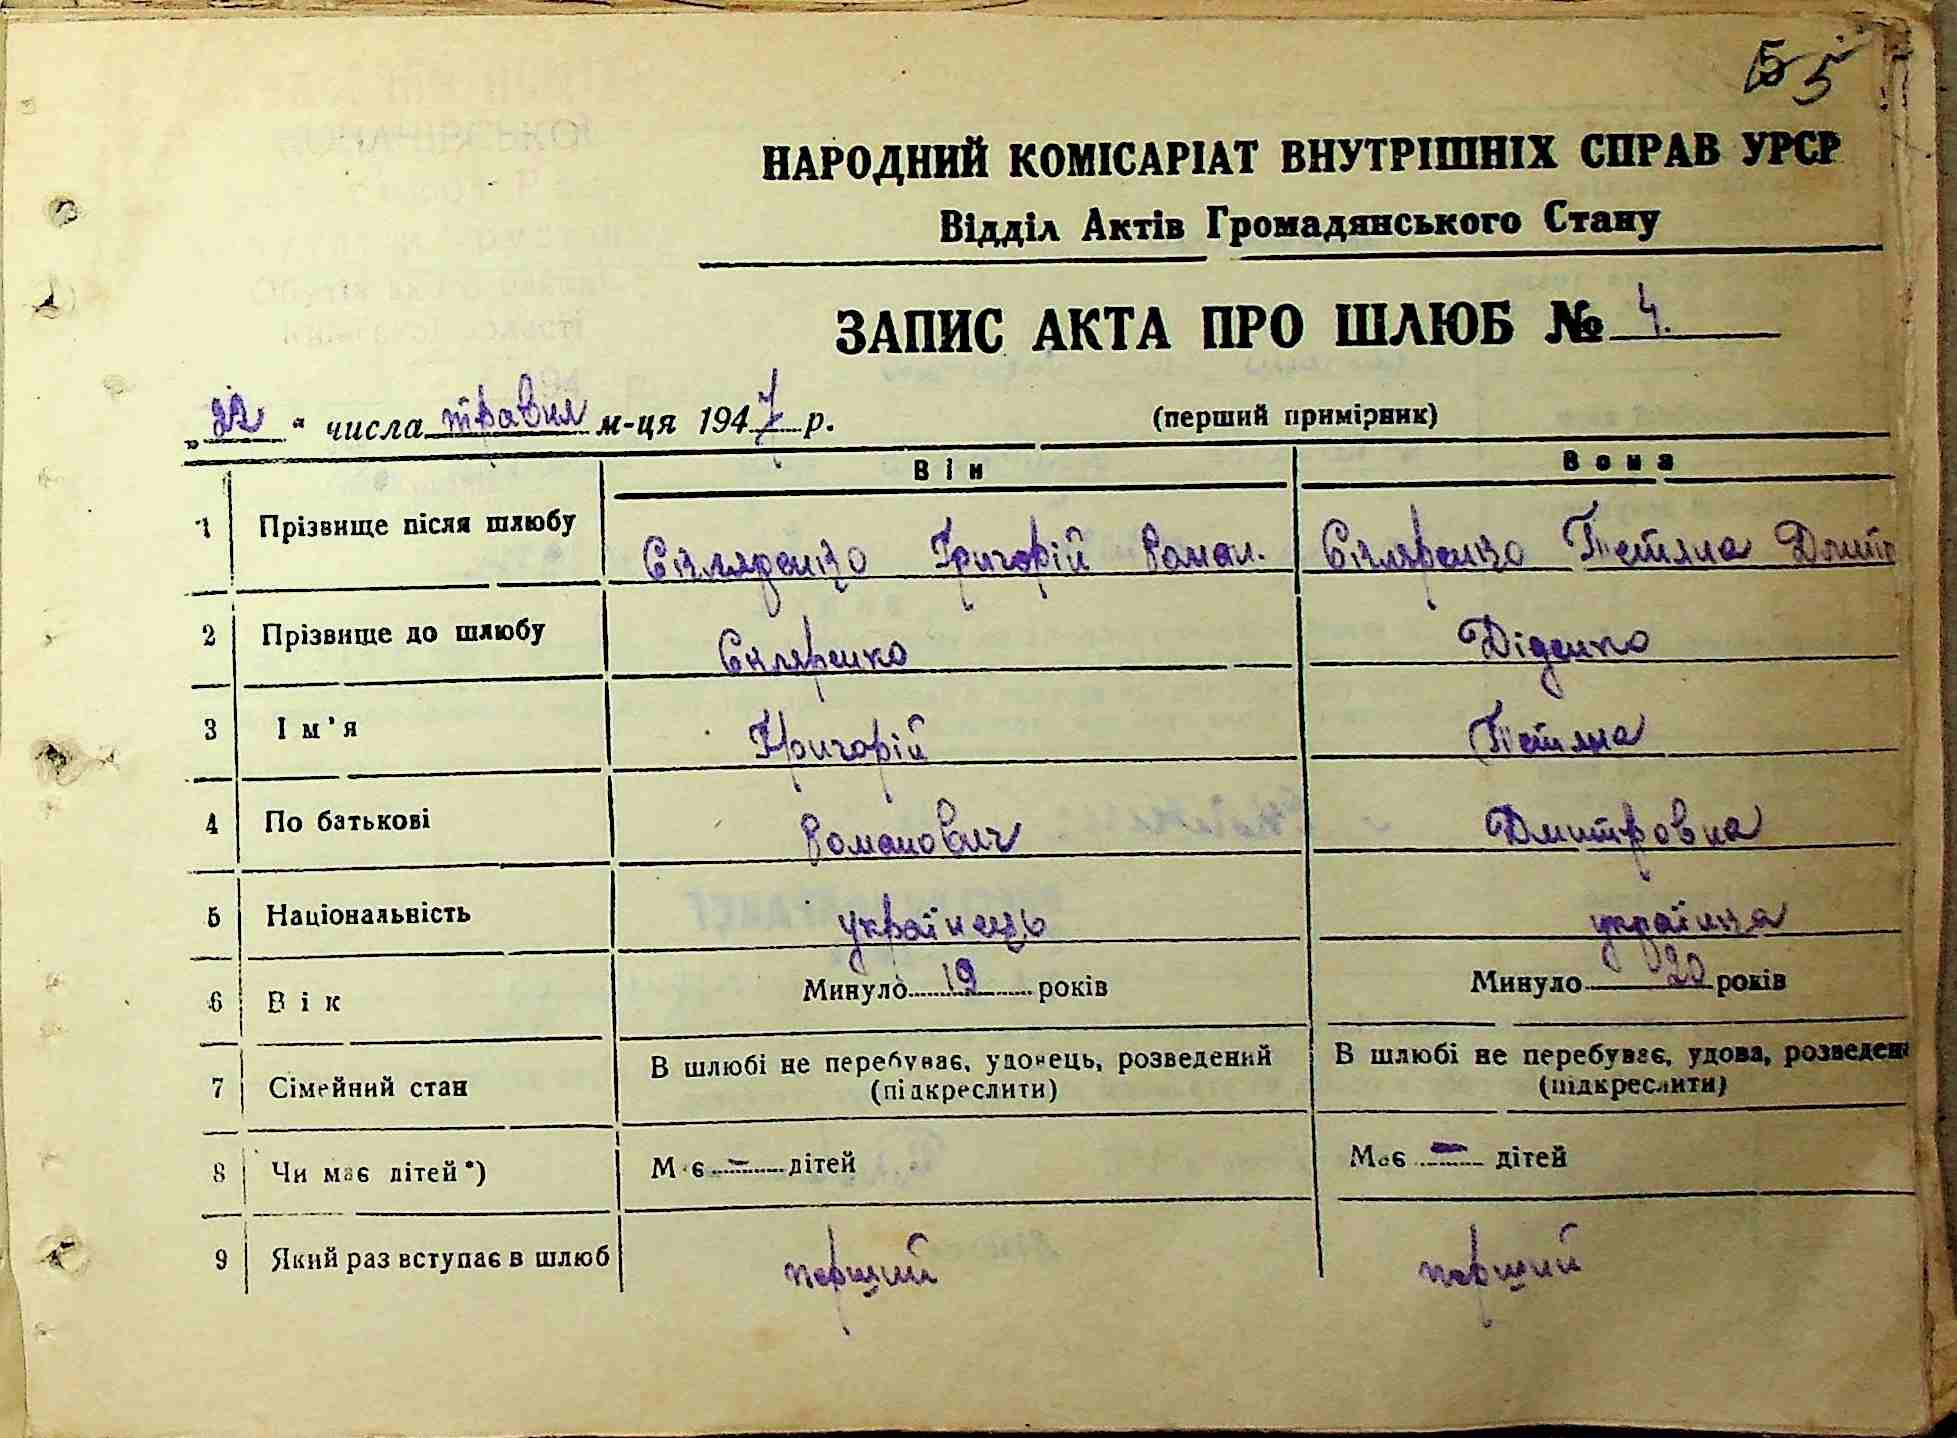 55
НАРОДНИЙ КОМІСАРІАТ ВНУТРІШНІХ СПРАВ УРСР
Відділ Актів Громадянського Стану
ЗАПИС АКТА ПРО ШЛЮБ № 4.
„22“ числа травня м-ця 1947 р. (перший примірник)
Він Вона
1 Прізвище після шлюбу Скляренко Григорій Роман. Скляренко Тетяна Дмитр
2 Прізвище до шлюбу Скляренко Діденко
3 Ім'я Григорій Тетяна
4 По батькові Романович Дмитровна
5 Національність українець українка
6 Вік Минуло 19 років Минуло 20 років
7 Сімейний стан В шлюбі не перебуває, удовець, розведений В шлюбі не перебуває, удова, розведен
(підкреслити) (підкреслити)
8 Чи має дітей*) Має – дітей Має – дітей
9 Який раз вступає в шлюб перший перший